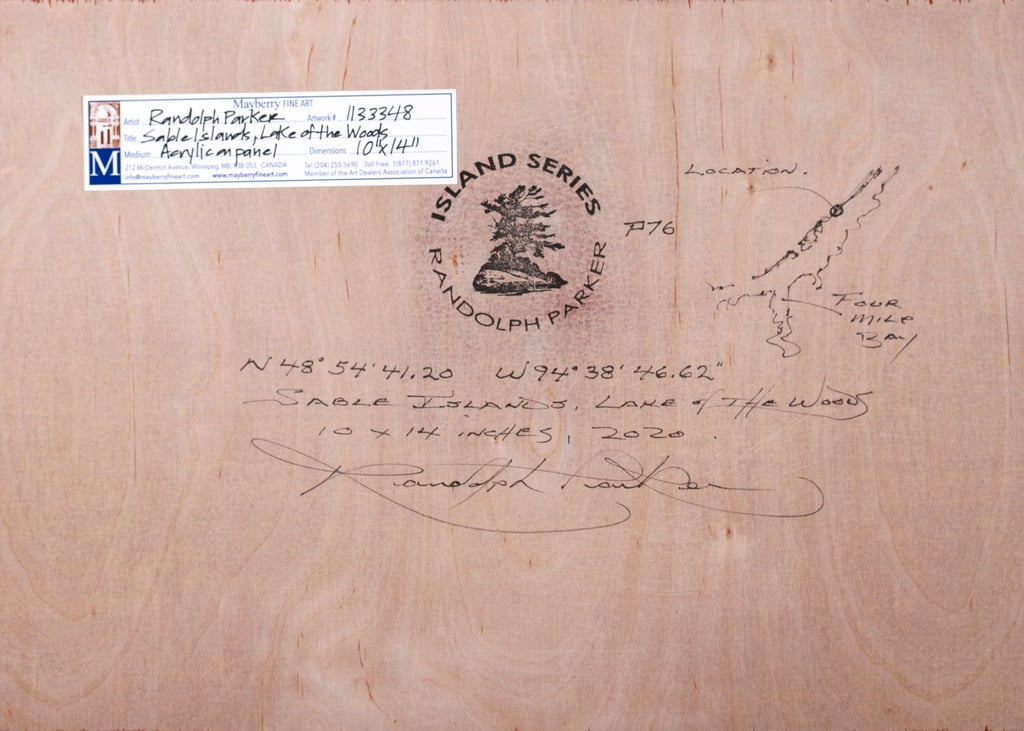 Mayberry FINE ART
Artist Randolph Parker Artwork # 1133348
Title Sable Islands, Lake of the Woods
Medium Acrylic on panel Dimensions 10"x14"
212 McDermot Avenue, Winnipeg, MB, R3B 0S3, CANADA Tel (204) 255.5690 Toll Free: 1(877) 871.9261
info@mayberryfineart.com www.mayberryfineart.com Member of the Art Dealers Association of Canada
M
ISLAND SERIES
RANDOLPH PARKER
P76
LOCATION.
FOUR
MILE
BAY
N 48° 54' 41.20 W 94° 38' 46.62"
SABLE ISLANDS, LAKE of THE WOODS
10 x 14 INCHES, 2020.
Randolph Parker